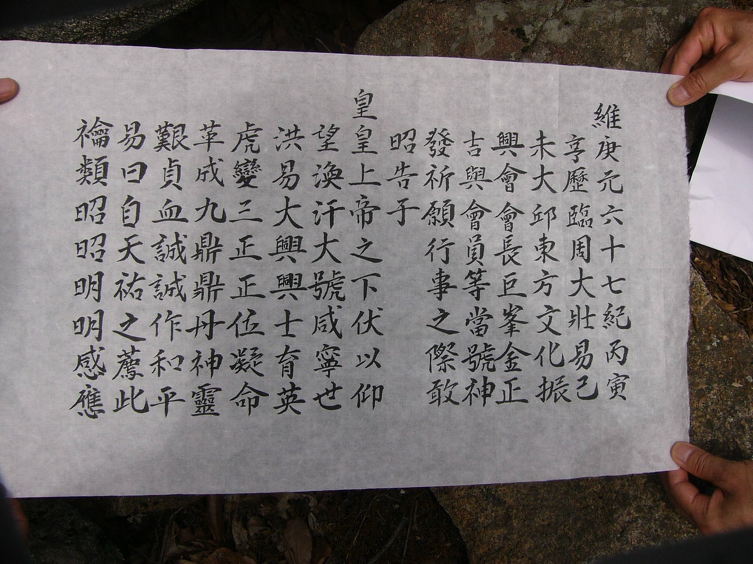 維庚元六十七紀丙寅
亨歷臨周大壯易己
未大邱東方文化振
興會會長巨峯金正
吉與會員等當號神
發祈願行事之際敢
昭告子
皇皇上帝之下伏以仰
望渙汗大號咸寧世
洪易大興興士育英
虎變三正正位凝命
革成九鼎鼎丹神靈
艱貞血誠誠作和平
易曰自天祐之薦此
禴類昭昭明明感應